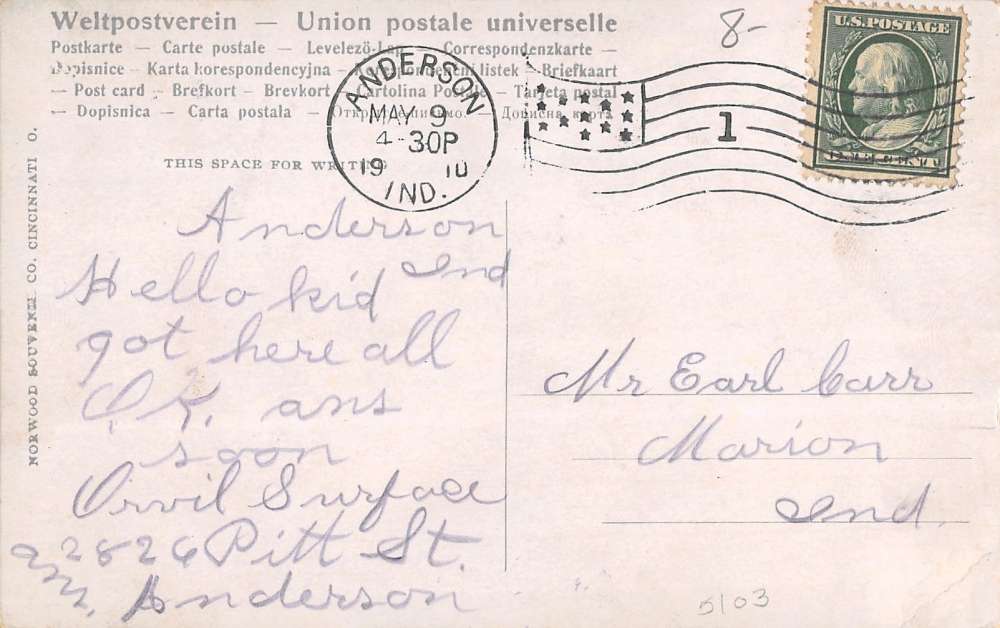 Weltpostverein — Union postale universelle
Postkarte — Carte postale — Levelező-Lap — Correspondenzkarte —
Dopisnice — Karta korespondencyjna — listek — Briefkaart
— Post card — Brefkort — Brevkort — Cartolina Postale — Tarjeta postal
— Dopisnica — Carta postala — — Дописна карта
THIS SPACE FOR WRITING
ANDERSON
MAY 9
4-30P
1910
IND.
1
8-
U.S. POSTAGE
ONE CENT
NORWOOD SOUVENIR CO. CINCINNATI O.
Anderson
Ind
Hello kid
got here all
O.K. ans
soon
Orvil Surface
2826 Pitt St.
Anderson
Mr Earl Carr
Marion
Ind.
5103